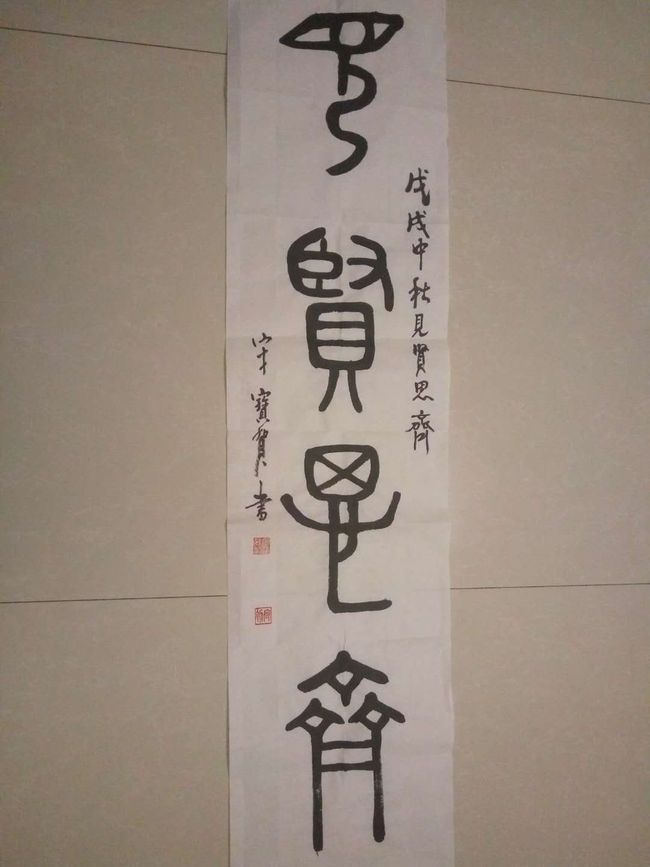 戊戌中秋見賢思齊
見賢思齊
宋寶賀書